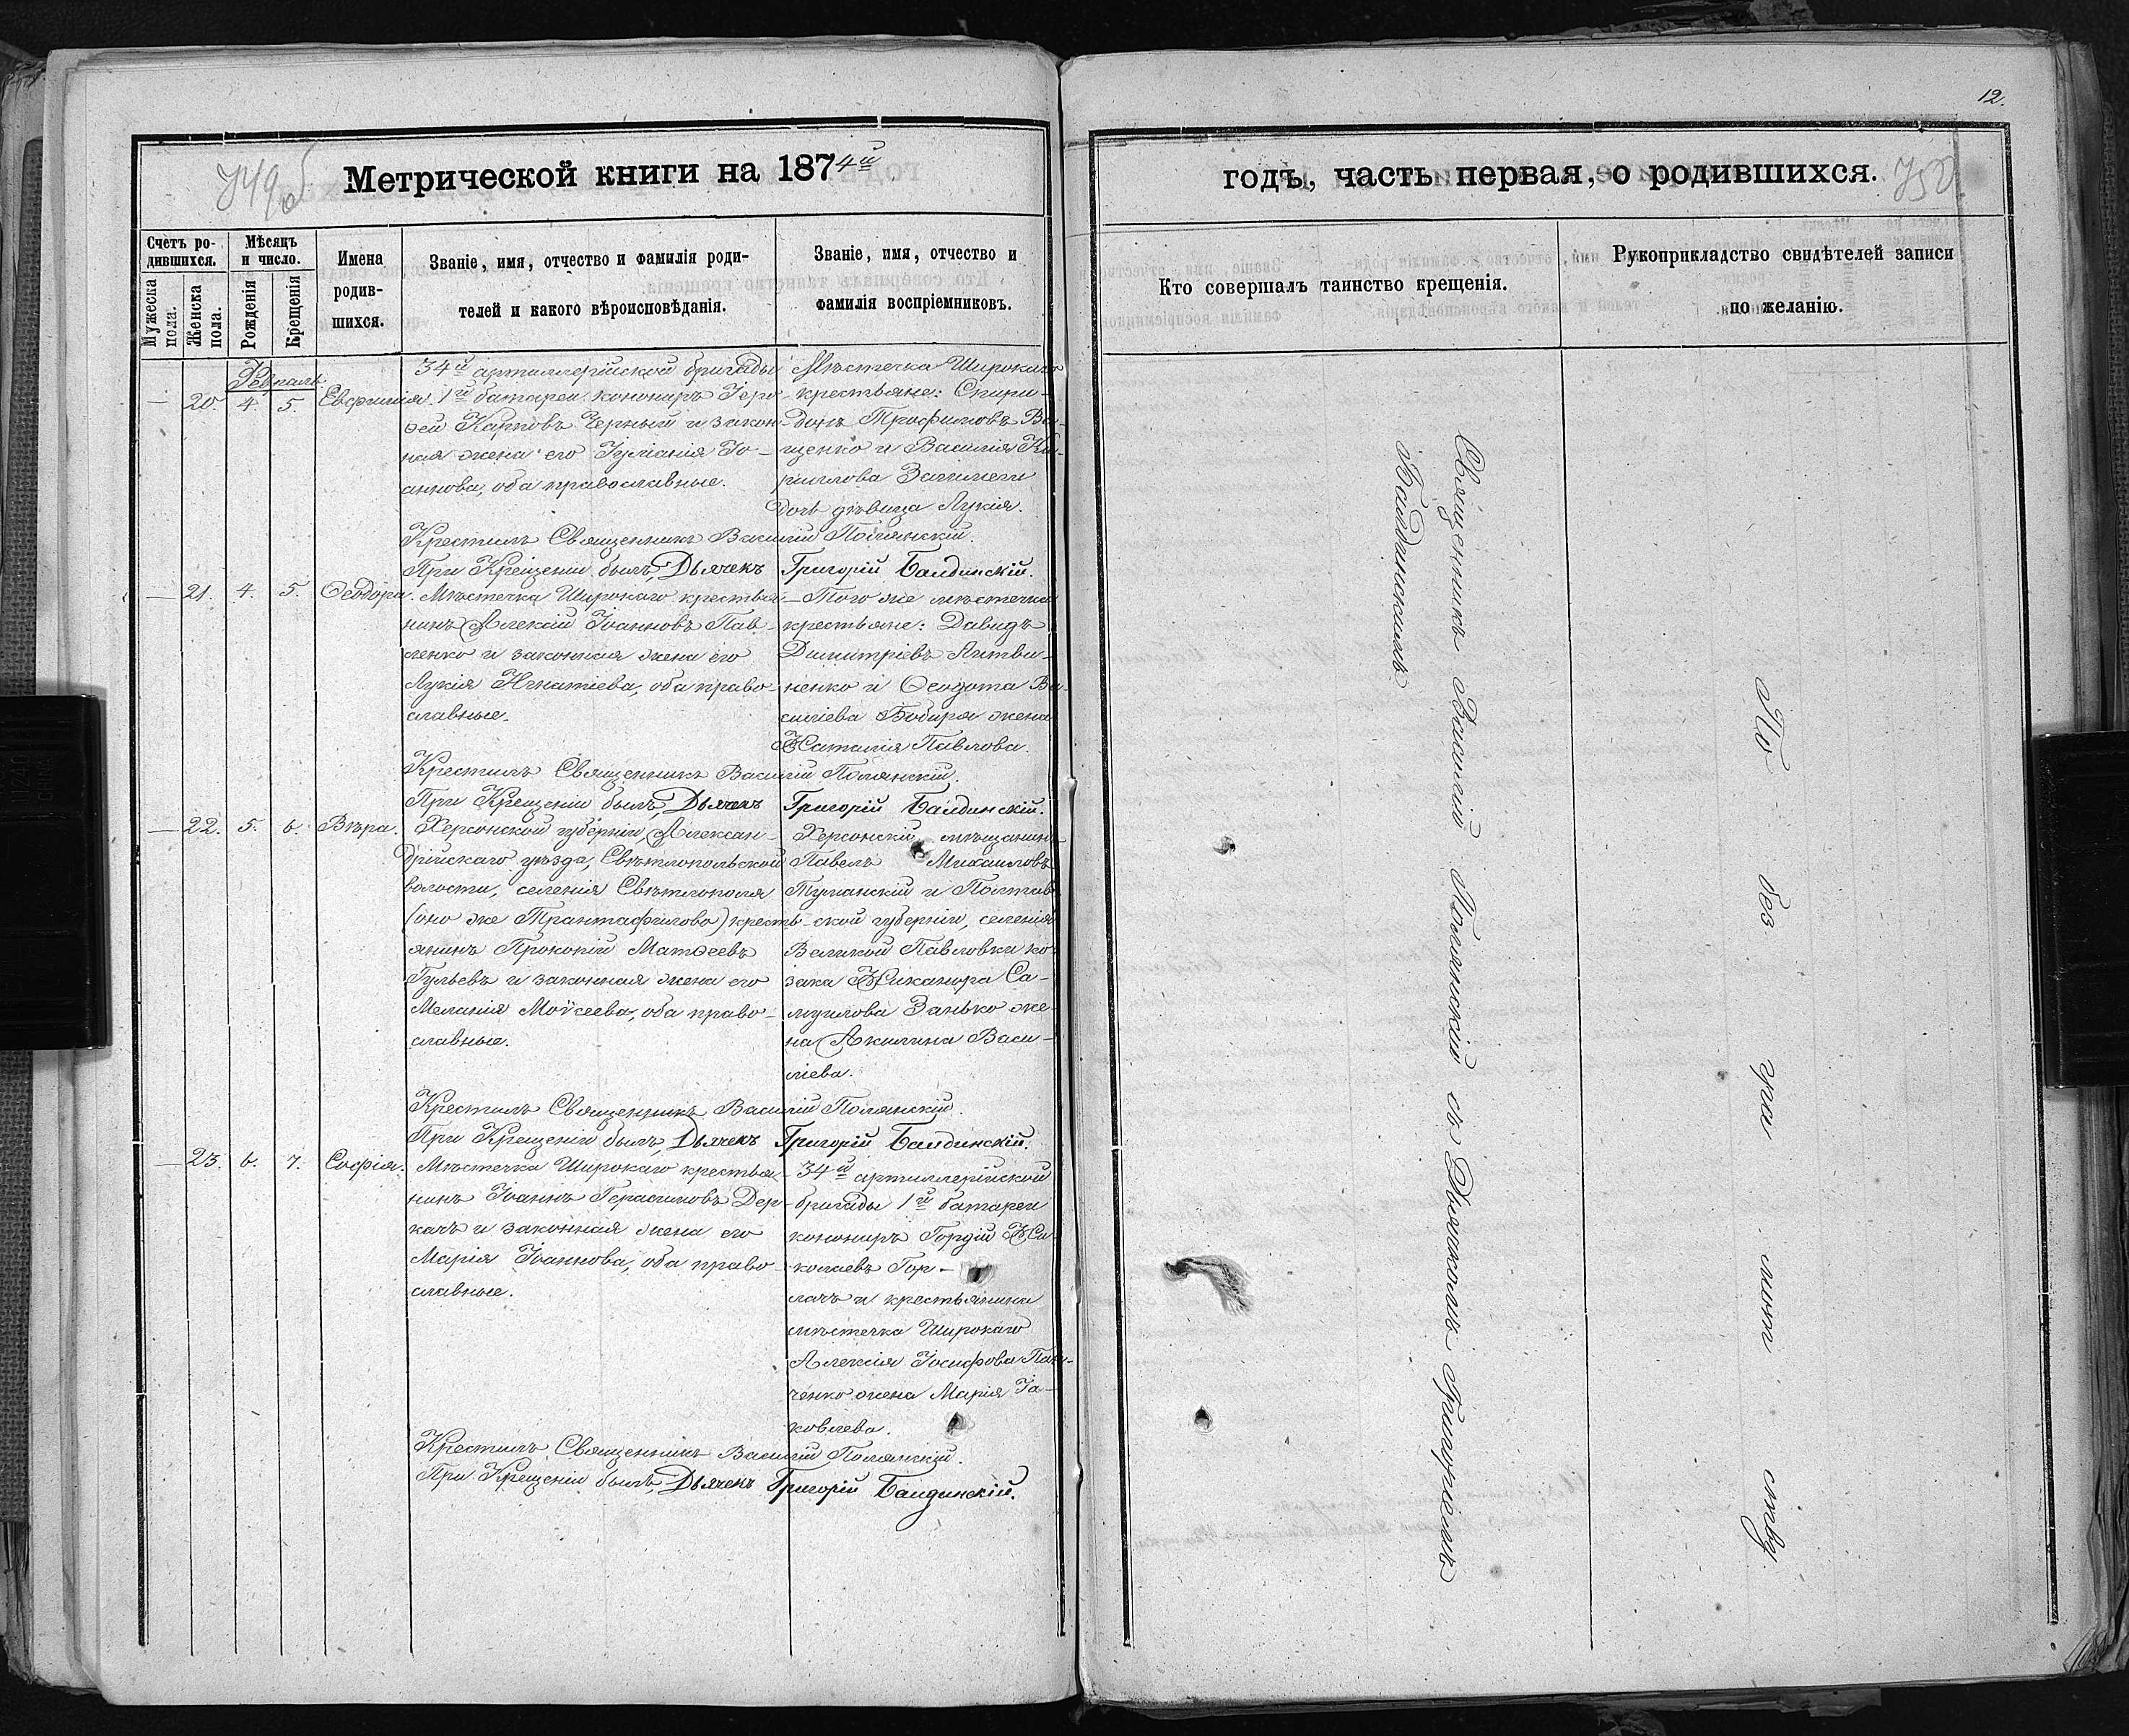 12.
749 об
Метрической книги на 1874й
годъ, часть первая, о родившихся.
750
Счетъ ро-
дившихся.
Мужеска
пола.
Женска
пола.
Мѣсяцъ
и число.
Рожденія
Крещенія
Имена
родив-
шихся.
Званіе, имя, отчество и фамилія роди-
телей и какого вѣроисповѣданія.
Званіе, имя, отчество и
фамилія воспріемниковъ.
Кто совершалъ таинство крещенія.
Рукоприкладство свидѣтелей записи
по желанію.
Февраль
— 20. 4. 5. Евфимія.
34й артиллерійской бригады
1й батареи конониръ
Карповъ Черный и закон-
ная жена его Іуліанія Іо-
аннова, оба православные.
Мѣстечка Широкаго
крестьяне: Спири-
донъ Трофимовъ Ва-
щенко и Василія Ки-
риллова
дочь дѣвица Лукія.
Крестилъ Священникъ Василій Полянскій.
При Крещеніи былъ, Дьячекъ Григорій Балдинскій.
— 21. 4. 5. Ѳеодора.
Мѣстечка Широкаго крестья-
нинъ Алексій Іоанновъ Пав-
ленко и законная жена его
Лукія Игнатіева, оба право-
славные.
Того же мѣстечка
крестьяне: Давидъ
Димитріевъ Литви-
ненко и Ѳеодота Ва-
силіева Бобыря жена
Наталія Павлова.
Крестилъ Священникъ Василій Полянскій.
При Крещеніи былъ, Дьячекъ Григорій Балдинскій.
— 22. 5. 6. Вѣра.
Херсонской губерніи, Алексан-
дрійскаго уѣзда, Свѣтлопольской
волости, селенія Свѣтлополя
(оно же Трантафилово) кресть-
янинъ Прокопій Матѳеевъ
Гульевъ и законная жена его
Меланія Моѵсеева, оба право-
славные.
Херсонскій мѣщанинъ
Павелъ Михаиловъ
Турчанскій и Полтав-
ской губерніи, селенія
Великой Павловки ко-
зака Никанора Са-
муилова Занько же-
на Акилина Васи-
ліева.
Крестилъ Священникъ Василій Полянскій.
При Крещеніи былъ, Дьячекъ Григорій Балдинскій.
— 23. 6. 7. Софія.
Мѣстечка Широкаго крестья-
нинъ Іоаннъ Герасимовъ Дер-
качъ и законная жена его
Марія Іоаннова, оба право-
славные.
34й артиллерійской
бригады 1й батареи
конониръ Гордій Ни-
колаевъ Гор-
лачъ и крестьянина
мѣстечка Широкаго
Алексія Іосифова Пан-
ченко жена Марія Іа-
ковлева.
Крестилъ Священникъ Василій Полянскій.
При Крещеніи былъ, Дьячекъ Григорій Балдинскій.
Священникъ Василій Полянскій съ Дьячкомъ Григоріемъ
Балдинскимъ
По без